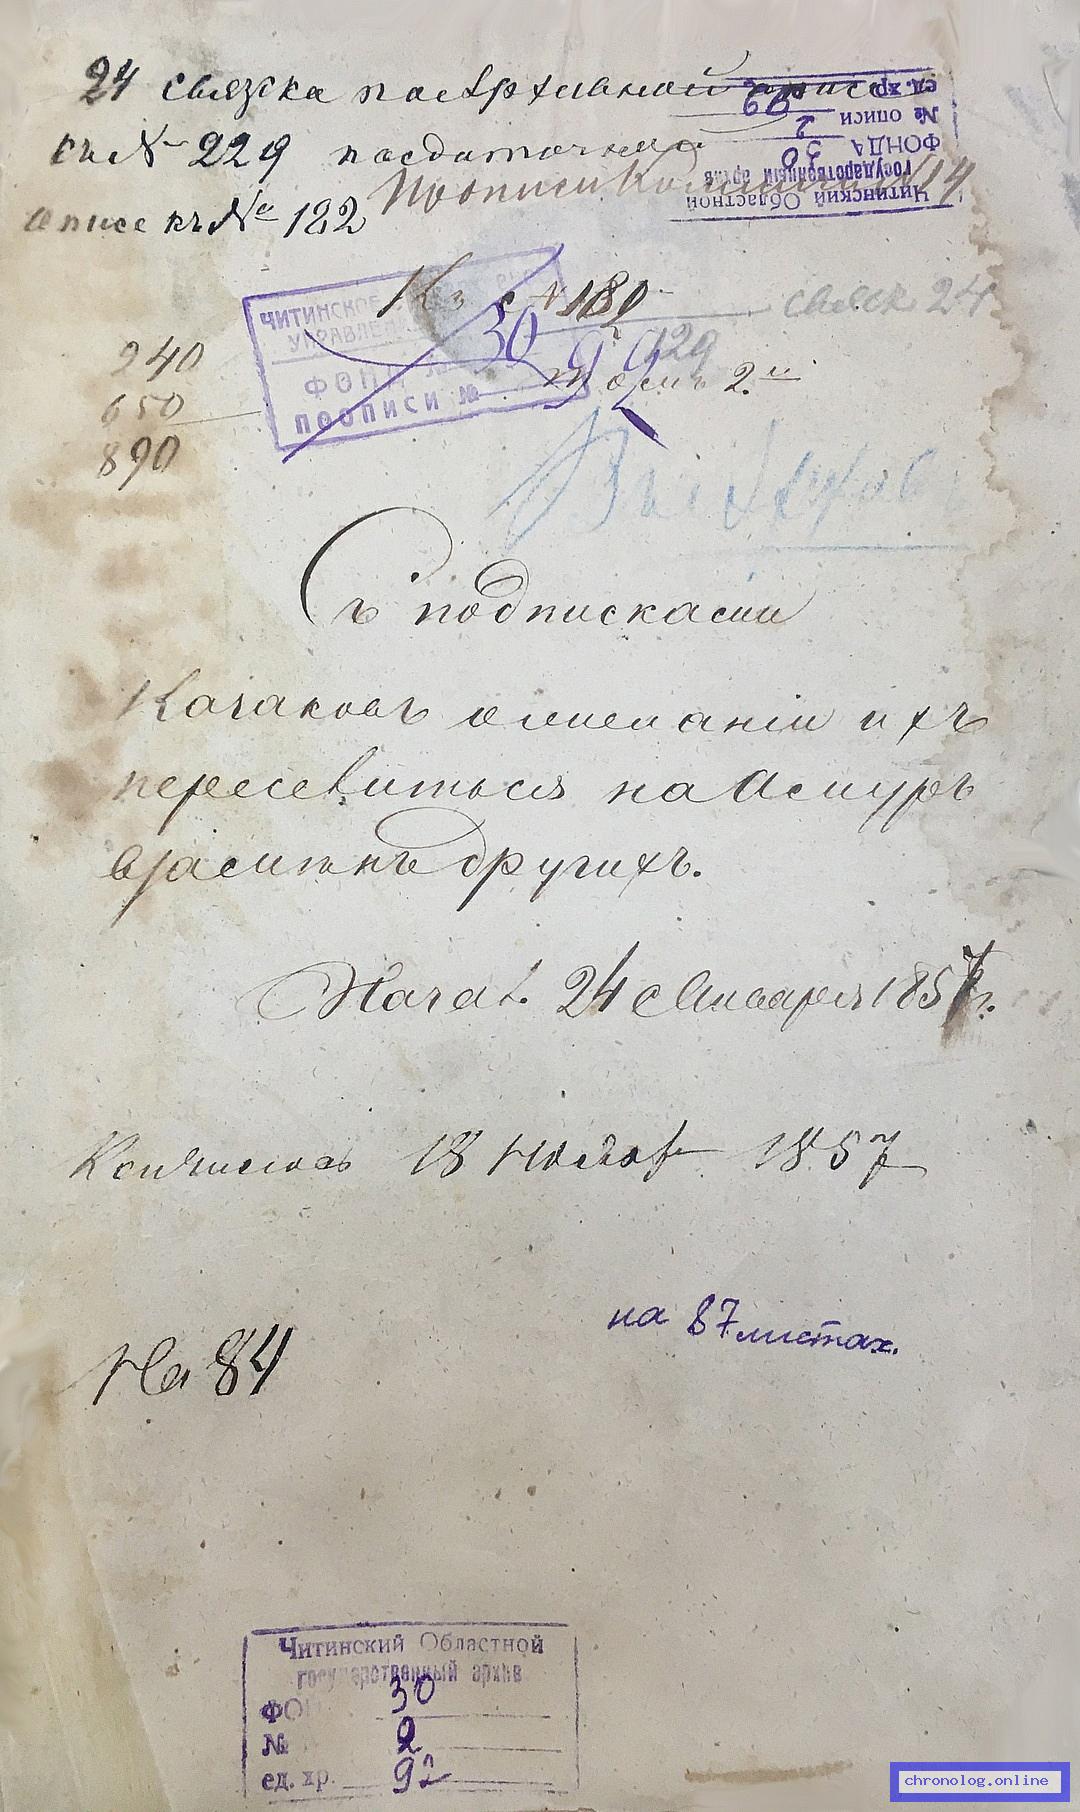 24 связка по архивной описи
къ № 229 по
описе къ № 182
Читинский Областной
государственный архив
ФОНДА 30
№ описи 2
ед. хр.
ЧИТИНСКОЕ
УПРАВЛЕ
ФОНД № 30
ПО ОПИСИ № 92
К 3 с 189
связк 24
929
240
650
890
томъ 2й
Съ подписками
Казаковъ о желаніи ихъ
переселиться на Амуръ
взаменъ другихъ.
Начал. 24 Января 1857 г.
Кончилось 18 Нояб 1857
На 84
на 87 листах.
Читинский Областной
государственный архив
ФОН 30
№ 2
ед. хр. 92
chronolog.online